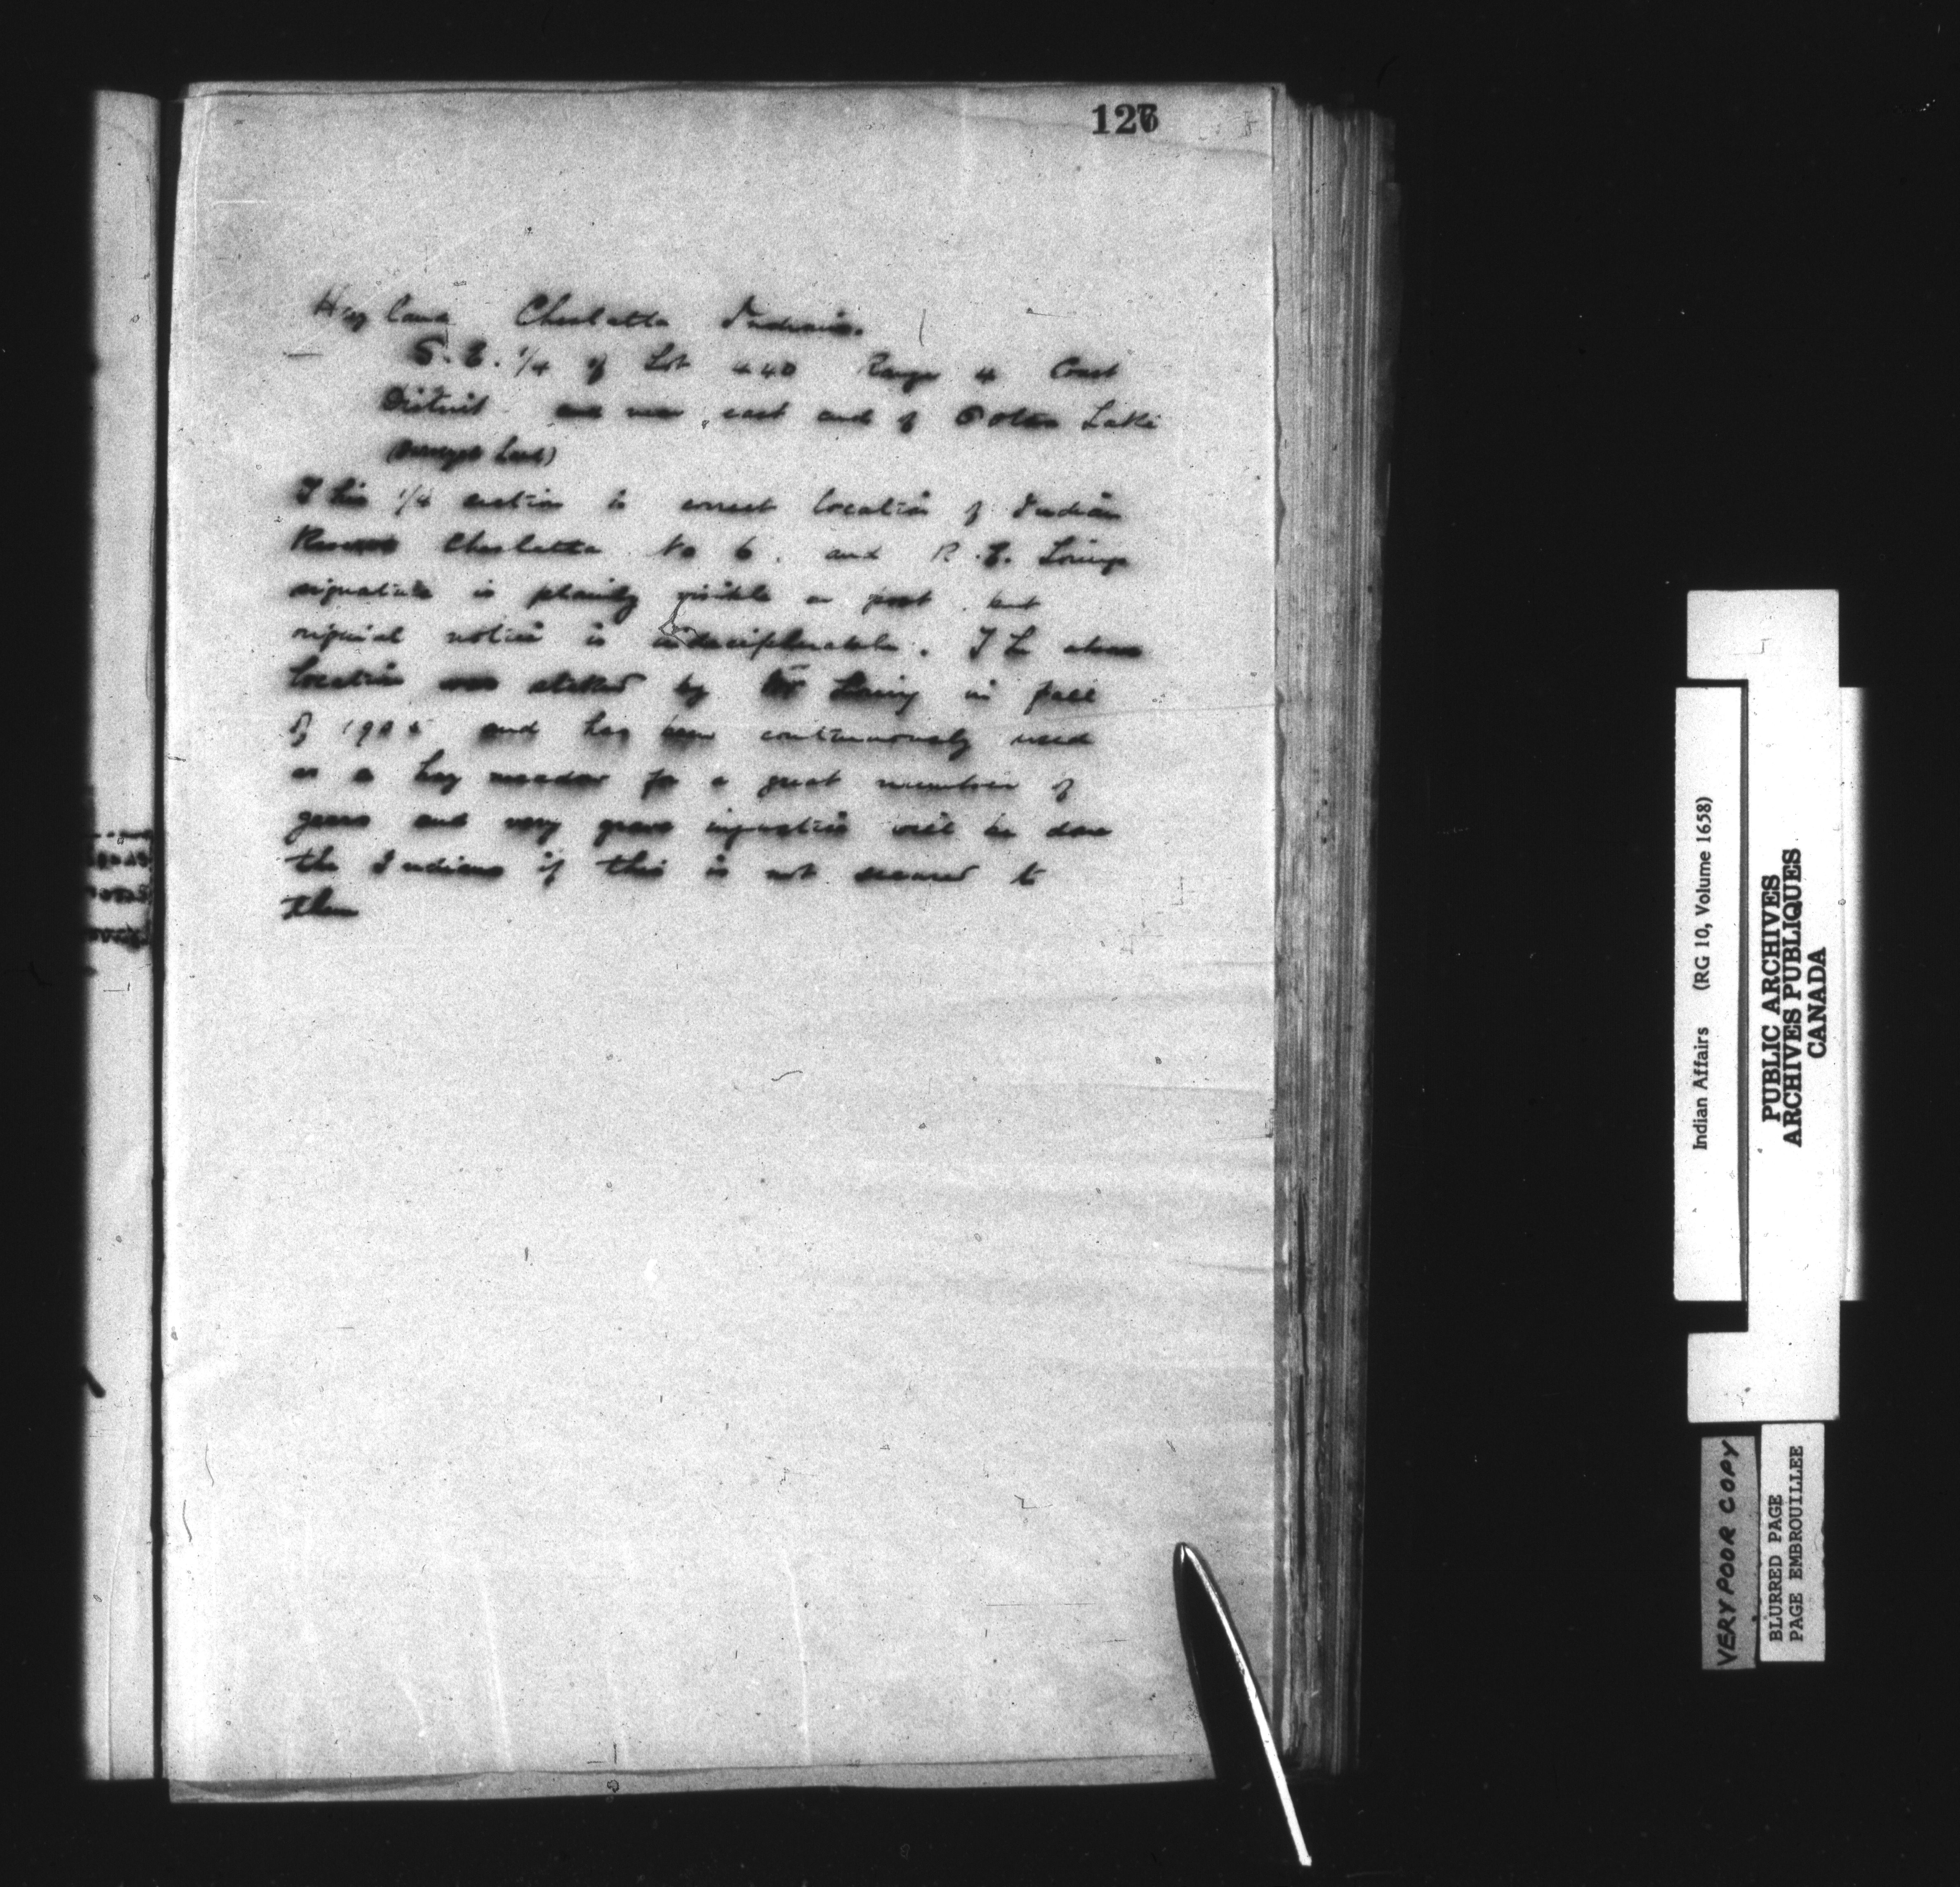 126
Hay land Cheslatta Indians.
S. E. 1/4 of Lot 440 Range 4 Coast
District and near east end of Lake
This 1/4 section is correct location of Indian
Reserve Cheslatta No 6. and R. E. Loring
signature is plainly visible on post but
original notice is undecipherable. The above
location was staked by Mr Loring in fall
of 1905 and has been continuously used
as a hay meadow for a great number of
years and very grave injustice will be done
the Indians if this is not secured to
them
Indian Affairs (RG 10, Volume 1658)
PUBLIC ARCHIVES
ARCHIVES PUBLIQUES
CANADA
VERY POOR COPY
BLURRED PAGE
PAGE EMBROUILLEE